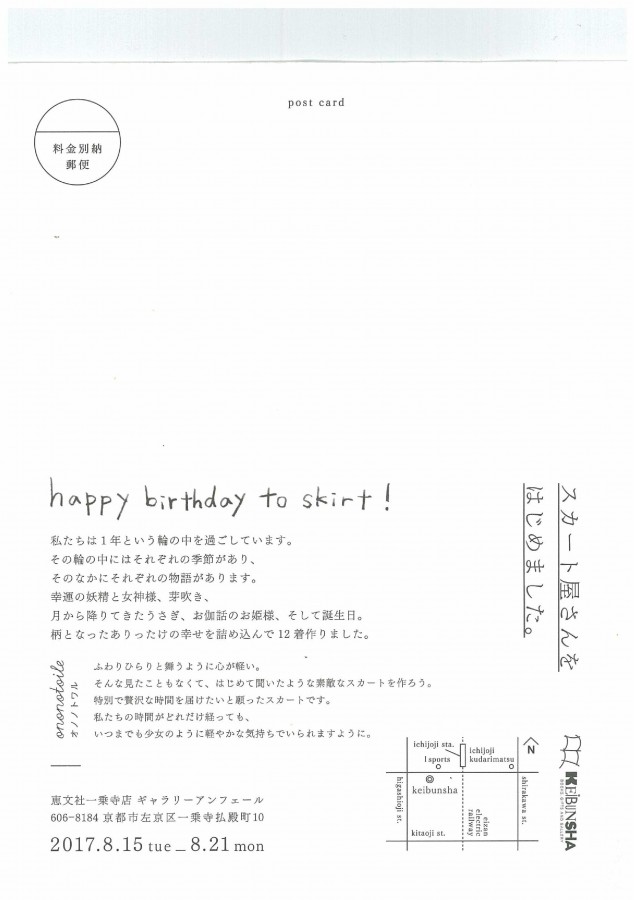 post card
料金別納
郵便
happy birthday to skirt!
スカート屋さんを
はじめました。
私たちは1年という輪の中を過ごしています。
その輪の中にはそれぞれの季節があり、
そのなかにそれぞれの物語があります。
幸運の妖精と女神様、芽吹き、
月から降りてきたうさぎ、お伽話のお姫様、そして誕生日。
柄となったありったけの幸せを詰め込んで12着作りました。
ononotoile
オノノトワル
ふわりひらりと舞うように心が軽い。
そんな見たこともなくて、はじめて聞いたような素敵なスカートを作ろう。
特別で贅沢な時間を届けたいと願ったスカートです。
私たちの時間がどれだけ経っても、
いつまでも少女のように軽やかな気持ちでいられますように。
恵文社一乗寺店 ギャラリーアンフェール
606-8184 京都市左京区一乗寺払殿町10
2017.8.15 tue _ 8.21 mon
ichijoji sta.
ichijoji
kudarimatsu
N
1sports
keibunsha
higashioji st.
shirakawa st.
eizan
electric
railway
kitaoji st.
KEIBUNSHA
BOOKS GIFTS AND GALLERY